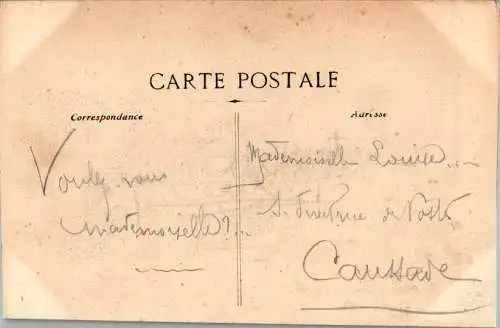 CARTE POSTALE
Correspondance
Adresse
Voulez vous
Mademoiselle ?...
Mademoiselle Louise...
de Poste
Caussade